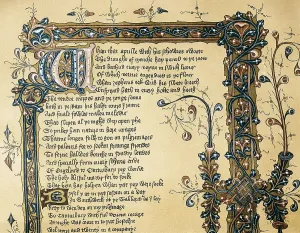 Whan that aprille with his shoures soote
The droghte of marche hath perced to the roote
And bathed every veyne in swich licour
Of which vertu engendred is the flour
Whan zephirus eek with his swete breeth
Inspired hath in every holt and heeth
The tendre croppes and the yonge sonne
Hath in the ram his half cours yronne
And smale foweles maken melodye
That slepen al the nyght with open eye
So priketh hem nature in hir corages
Thanne longen folk to goon on pilgrimages
And palmeres for to seken straunge strondes
To ferne halwes kowthe in sondry londes
And specially from every shires ende
Of Engelond to Caunterbury they wende
The holy blisful martir for to seke
That hem hath holpen whan that they were seeke
Bifil that in that seson on a day
In Southwerk at the Tabard as I lay
Redy to wenden on my pilgrimage
To Caunterbury with ful devout corage
At nyght was come in to that hostelrye